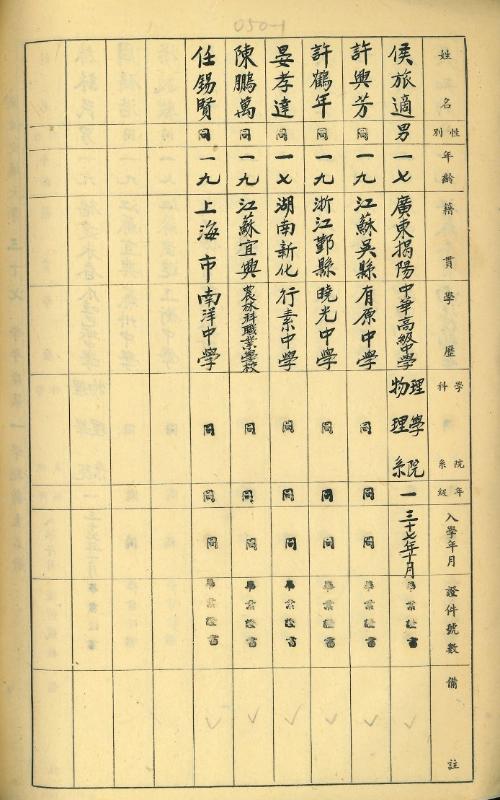 050-1
姓名 性別 年齡 籍貫 學歷 學院科系 年級 入學年月 證件號數 備註
侯旅適 男 一七 廣東揭陽 中華高級中學 理學院物理系 一 三十七年十月 畢業證書
許興芳 同 一九 江蘇吳縣 有原中學 同 同 同 畢業證書
許鶴年 同 一九 浙江鄞縣 曉光中學 同 同 同 畢業證書
晏孝達 同 一七 湖南新化 行素中學 同 同 同 畢業證書
陳鵬萬 同 一九 江蘇宜興 農林科職業學校 同 同 同 畢業證書
任錫賢 同 一九 上海市 南洋中學 同 同 同 畢業證書